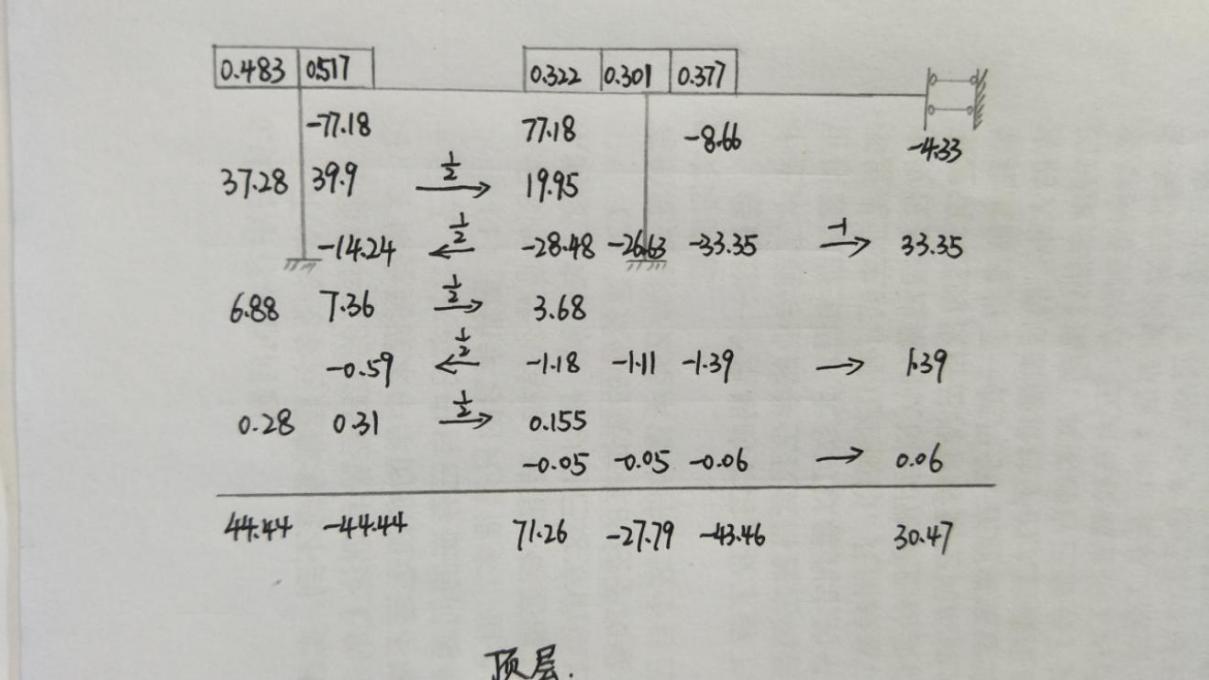 0.483 0.517 0.322 0.301 0.377
-77.18 77.18 -8.66 -4.33
37.28 39.9 1/2 19.95
-14.24 1/2 -28.48 -26.63 -33.35 -1 33.35
6.88 7.36 1/2 3.68
-0.59 1/2 -1.18 -1.11 -1.39 1.39
0.28 0.31 1/2 0.155
-0.05 -0.05 -0.06 0.06
44.44 -44.44 71.26 -27.79 -43.46 30.47
顶层.